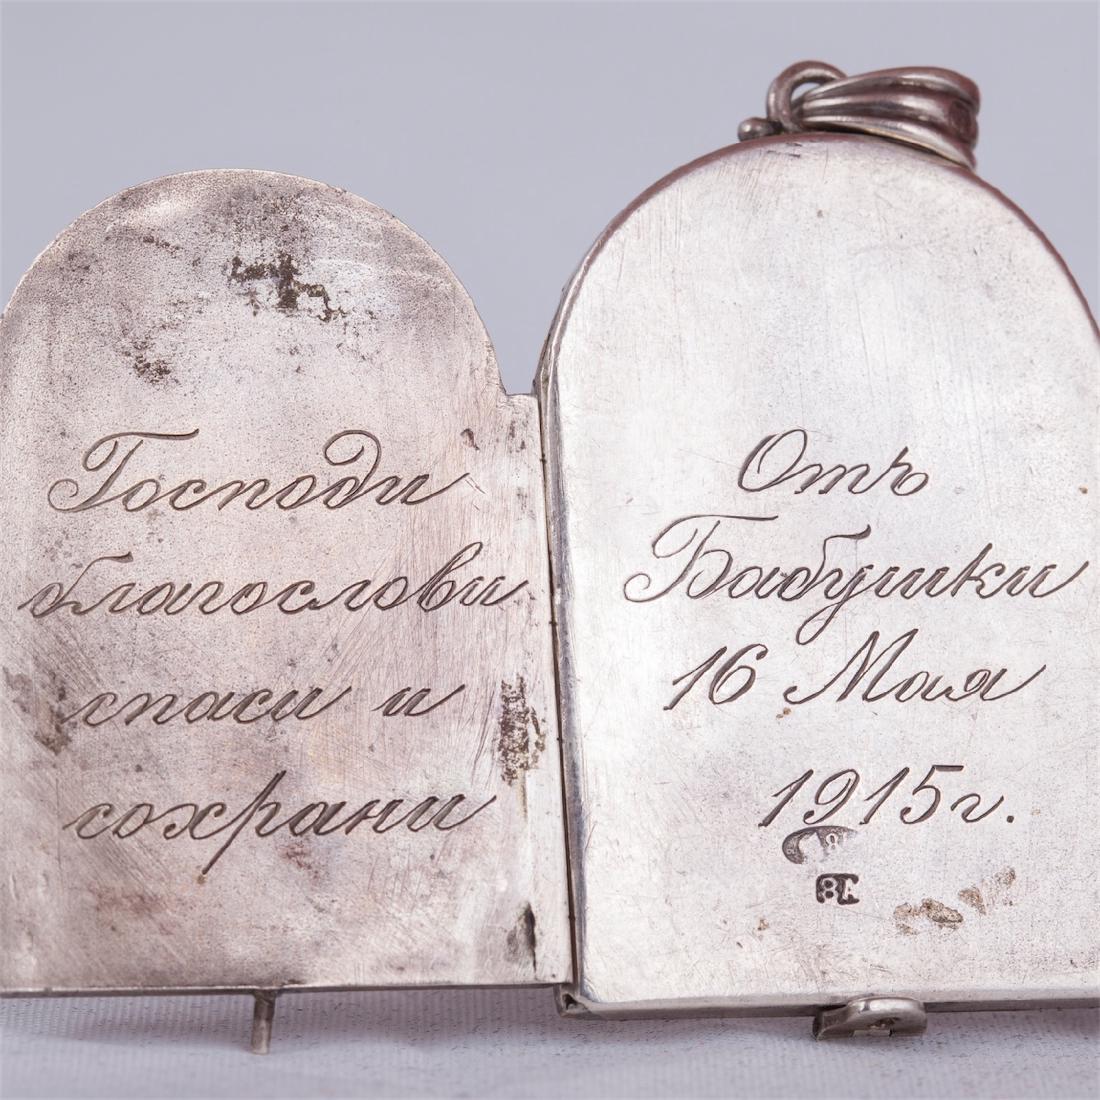 Господи
благослови
спаси и
сохрани
Отъ
Бабушки
16 Мая
1915г.
8А